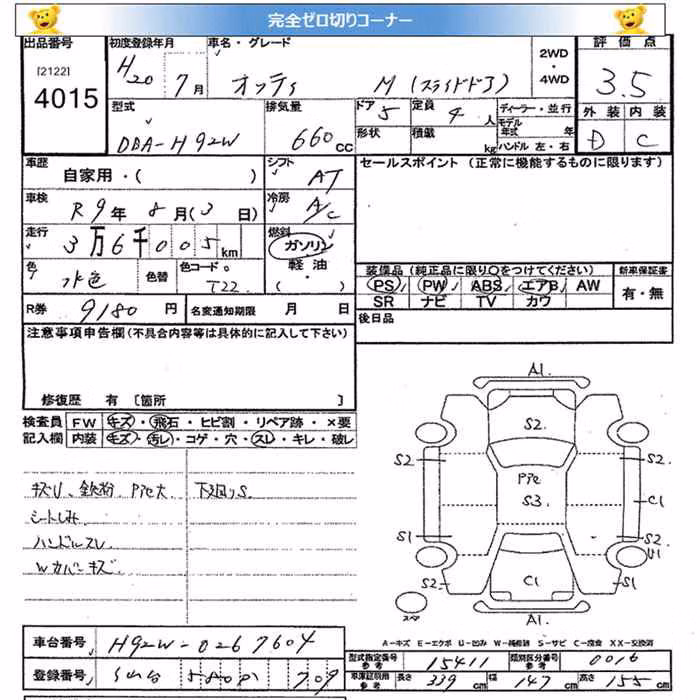 完全ゼロ切りコーナー
出品番号 初度登録年月 車名・グレード 2WD・4WD 評価点
[2122] 4015 H20 7月 オッティ M (スライドドア) 3.5
型式 排気量 ドア 5 定員 4人 ディーラー・並行 外装 内装
DBA-H92W 660cc 形状 積載 kg モデル年式 年 ハンドル 左・右 D C
車歴 自家用・( ) シフト AT セールスポイント (正常に機能するものに限ります)
車検 R9年 8月(3日) 冷房 A/C
走行 3万6千005km 燃料 ガソリン 軽油 ( )
色 水色 色替 色コード T22 装備品 (純正品に限り○をつけてください) 新車保証書
PS PW ABS エアB AW 有・無
SR ナビ TV カワ
R券 9180円 名変通知期限 月 日 後日品
注意事項申告欄(不具合内容等は具体的に記入して下さい)
修復歴 有 [箇所 ]
検査員 FW キズ・飛石・ヒビ割・リペア跡・×要
記入欄 内装 キズ・汚レ・コゲ・穴・スレ・キレ・破レ
キズU、鉄粉、Pie大 下廻りS
シートしみ
ハンドルスレ
Wカバーキズ
A1
S2
S2 Pie S2
S3 C1
S1 S2
U1
S2 C1 S1
スペア A1
A-キズ E-エクボ U-凹み W-補修跡 S-サビ C-腐食 XX-交換済
車台番号 H92W-0267604
型式指定番号 参考 15411 類別区分番号 参考 0016
登録番号 仙台 580 709
車庫証明用 参考 長さ 339cm 幅 147cm 高さ 155cm